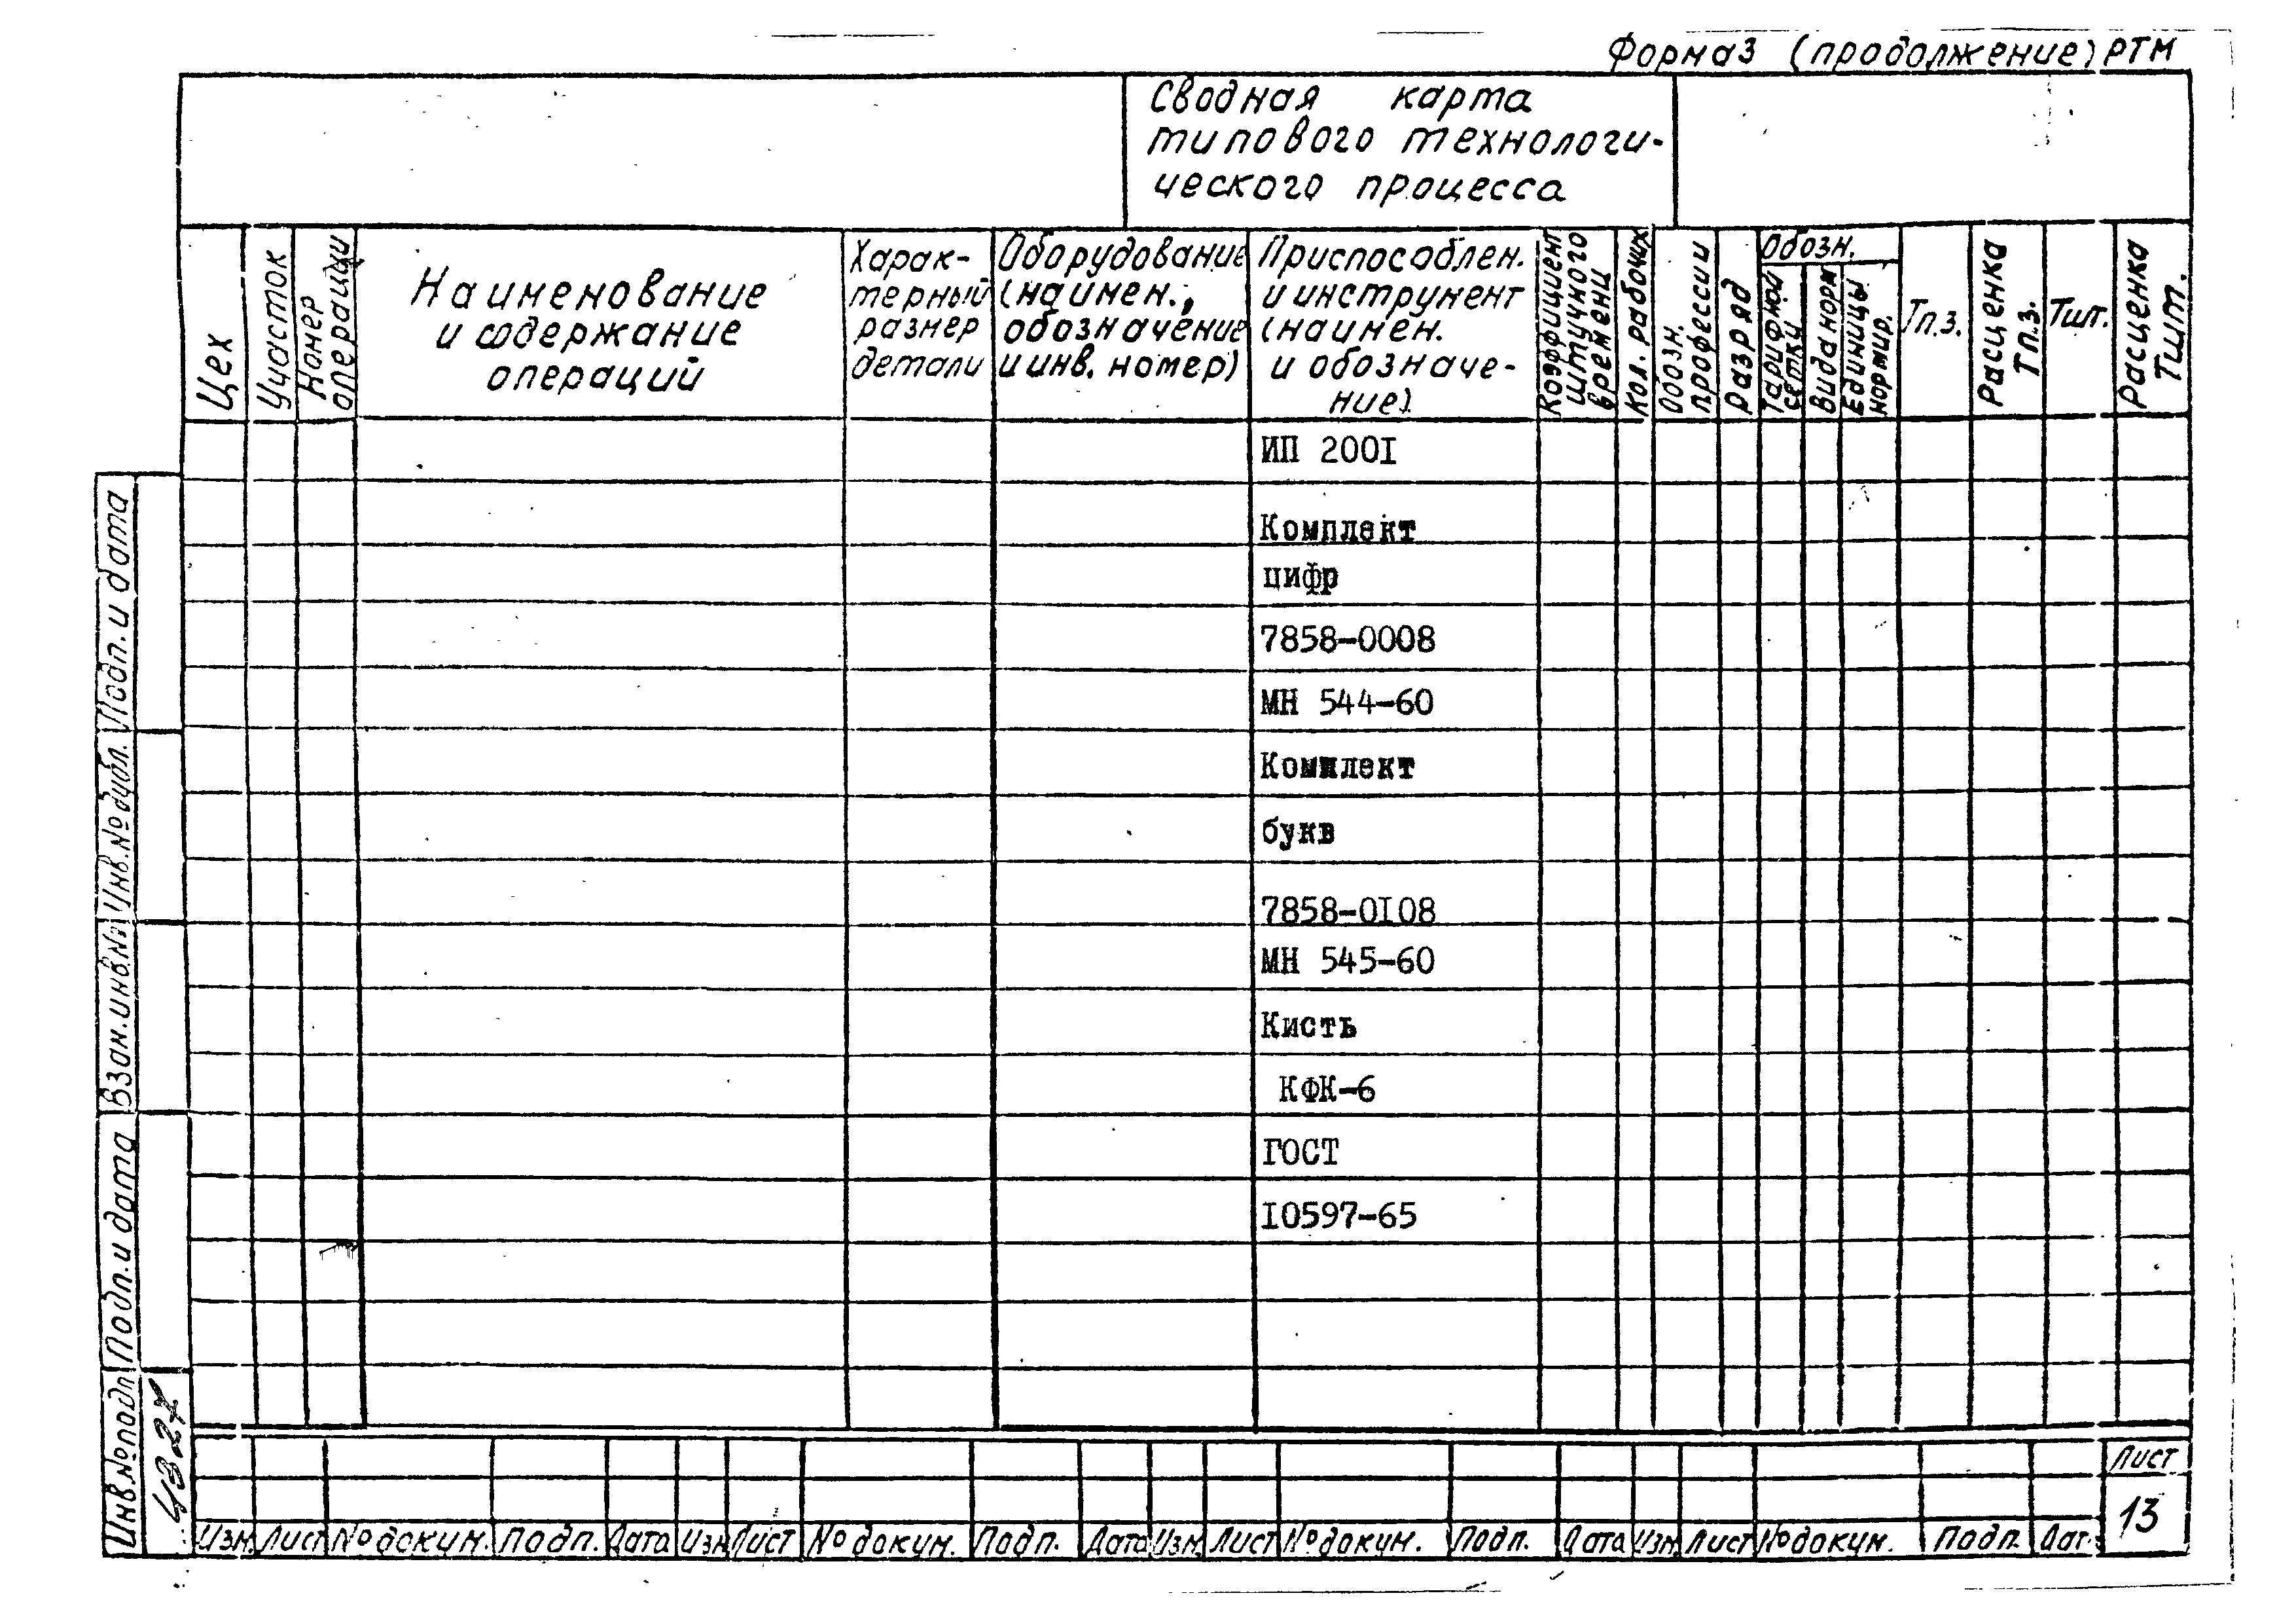 Форма 3 (продолжение) РТМ
Сводная карта
типового технологи-
ческого процесса
Цех
Участок
Номер
операции
Наименование
и содержание
операций
Харак-
терный
размер
детали
Оборудование
(наимен.,
обозначение
и инв. номер)
Приспособлен.
и инструмент
(наимен.
и обозначе-
ние)
Коэффициент
штучного
времени
Кол. рабочих
Обозн.
профессии
Разряд
Обозн.
Тарифной
сетки
Вида норм
Единицы
нормир.
Тп.з.
Расценка
Тп.з.
Тшт.
Расценка
Тшт.
ИП 200I
Комплект
цифр
7858-0008
МН 544-60
Комплект
букв
7858-0I08
МН 545-60
Кисть
КФК-6
ГОСТ
I0597-65
Подп. и дата
Инв. № дубл.
Взам. инв. №
Подп. и дата
Инв. № подл
4327
Лист
13
Изм Лист № докум. Подп. Дата Изм Лист № докум. Подп. Дата Изм. Лист № докум. Подп. Дата Изм Лист № докум. Подп. Дат.